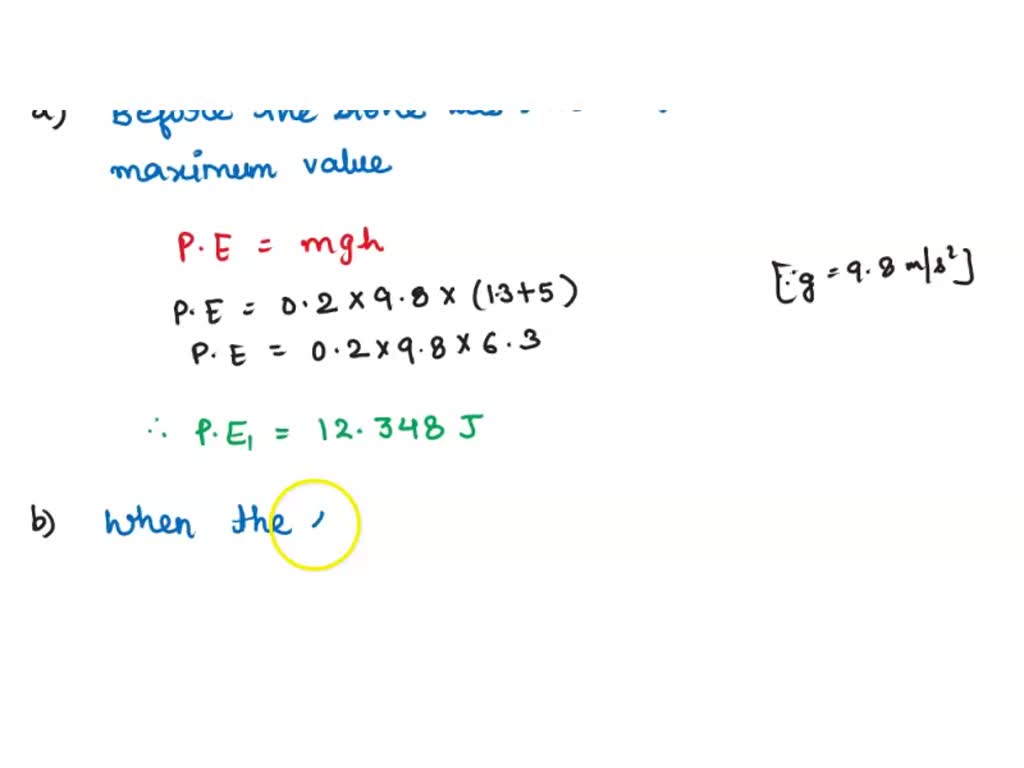 a) Before the stone
maximum value
P.E = mgh
P.E = 0.2 × 9.8 × (1.3+5) [∵g = 9.8 m/s²]
P.E = 0.2 × 9.8 × 6.3
∴ P.E₁ = 12.348 J
b) When the